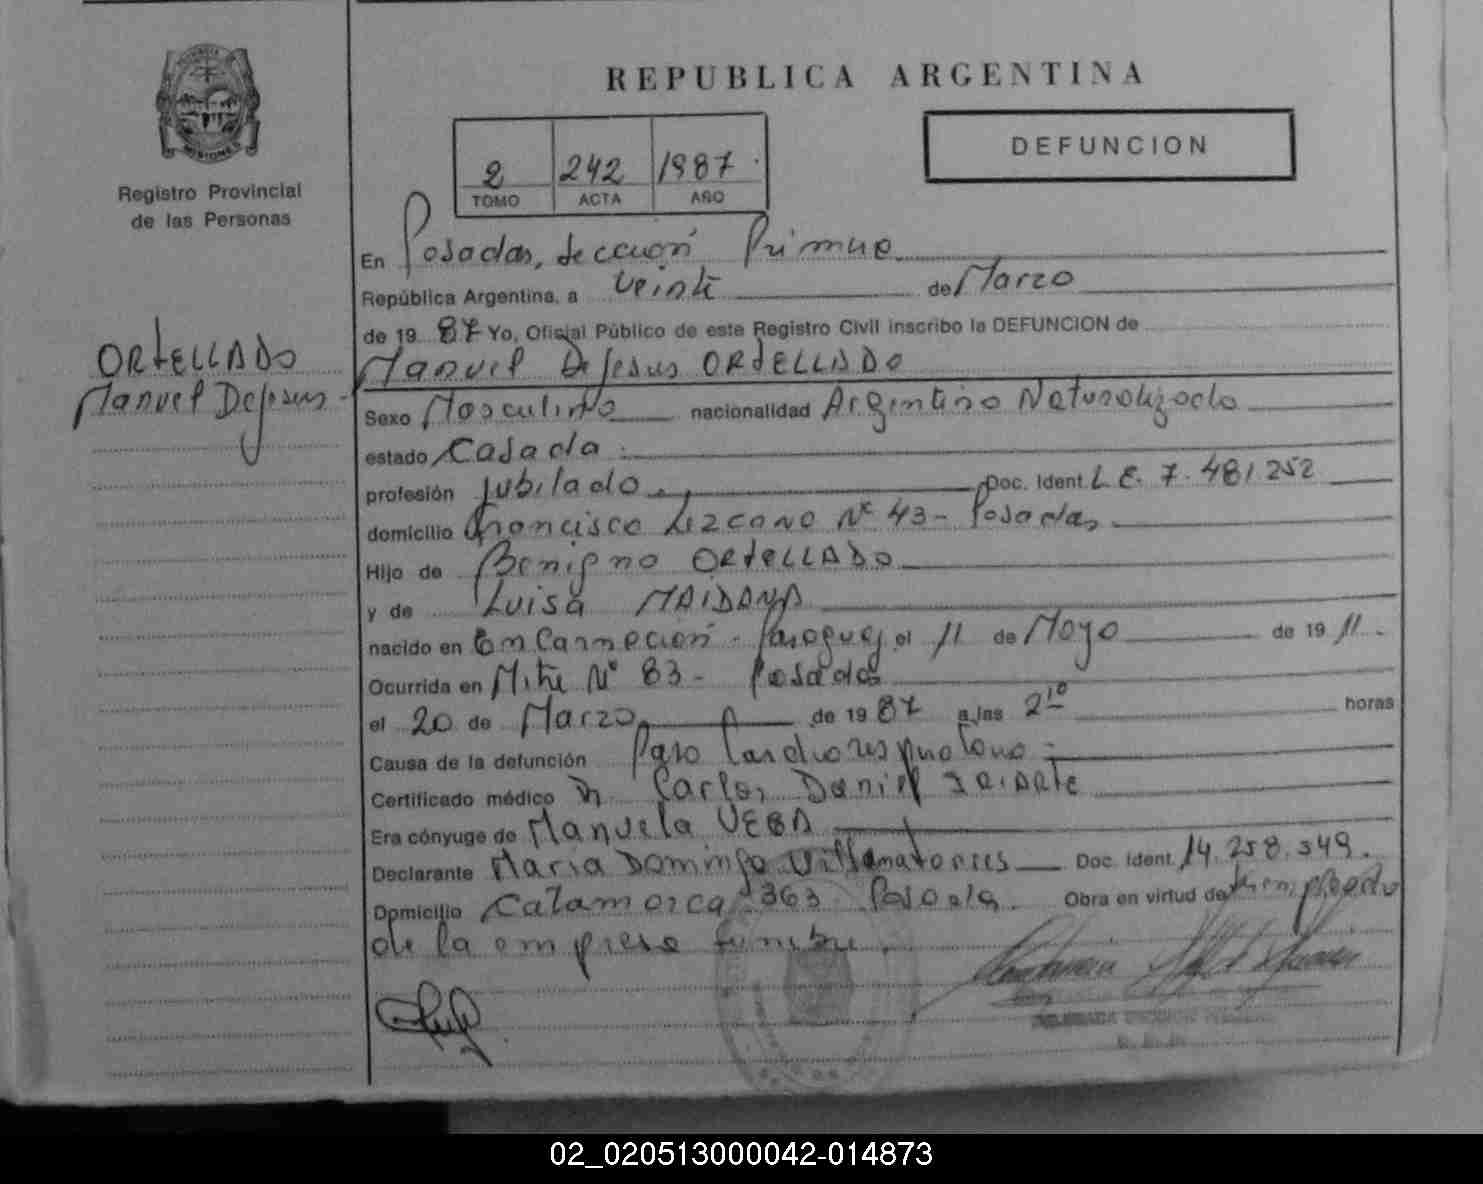 REPUBLICA ARGENTINA
DEFUNCION
2 242 1987
TOMO ACTA AÑO
MISIONES
Registro Provincial
de las Personas
ORTELLADO
Manuel DeJesus -
En Posadas, Sección Primera
República Argentina, a veinte de Marzo
de 19 87 Yo, Oficial Público de este Registro Civil inscribo la DEFUNCION de
Manuel DeJesus ORTELLADO
Sexo Masculino nacionalidad Argentino Naturalizado
estado Casado
profesión Jubilado. Doc. Ident. L E. 7.481.252
domicilio Francisco Lezcano Nº 43 - Posadas
Hijo de Benigno ORTELLADO
y de Luisa MAIDANA
nacido en Encarnación - Paraguay el 11 de Mayo de 19 11.
Ocurrida en Mitre Nº 83 - Posadas
el 20 de Marzo de 19 87 a las 2 10 horas
Causa de la defunción Paro Cardiorespiratorio -
Certificado médico Dr. Carlos Daniel IRIARTE
Era cónyuge de Manuela VEGA
Declarante Maria Domingo Doc. Ident. 14.258.349.
Domicilio Catamarca 363 Posadas. Obra en virtud de empleado
de la empresa funebre.
02_020513000042-014873